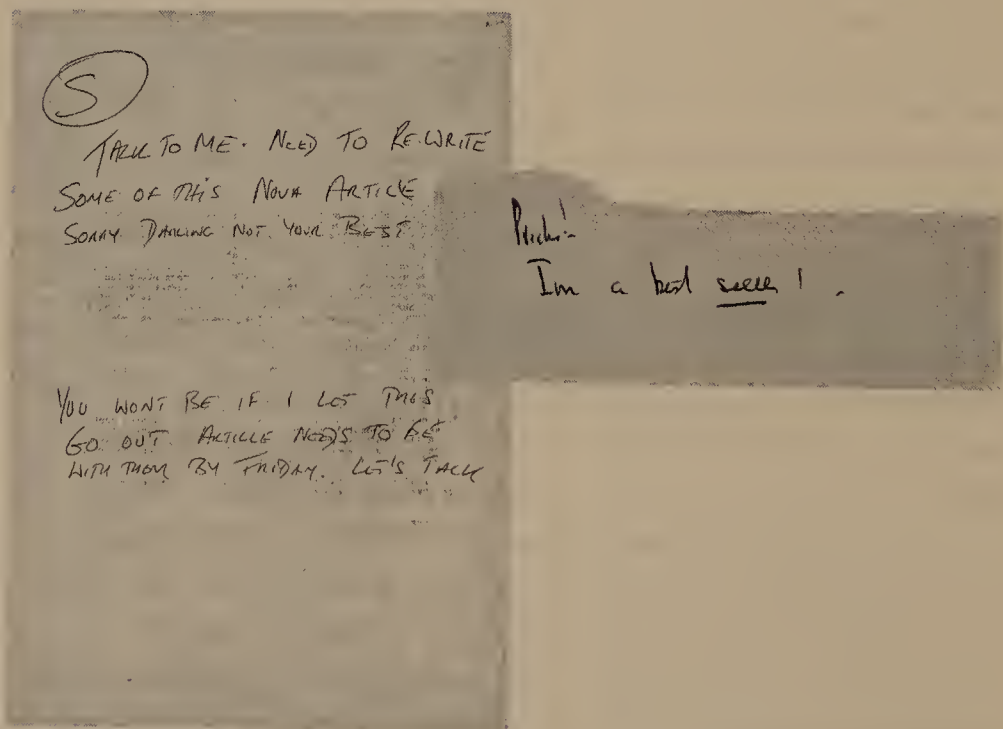 S
TALK TO ME. NEED TO RE-WRITE
SOME OF THIS NOVA ARTICLE
SORRY DARLING NOT YOUR BEST
Im a best seller!
YOU WONT BE IF I LET THIS
GO OUT. ARTICLE NEEDS TO BE
WITH THEM BY FRIDAY. LET'S TALK